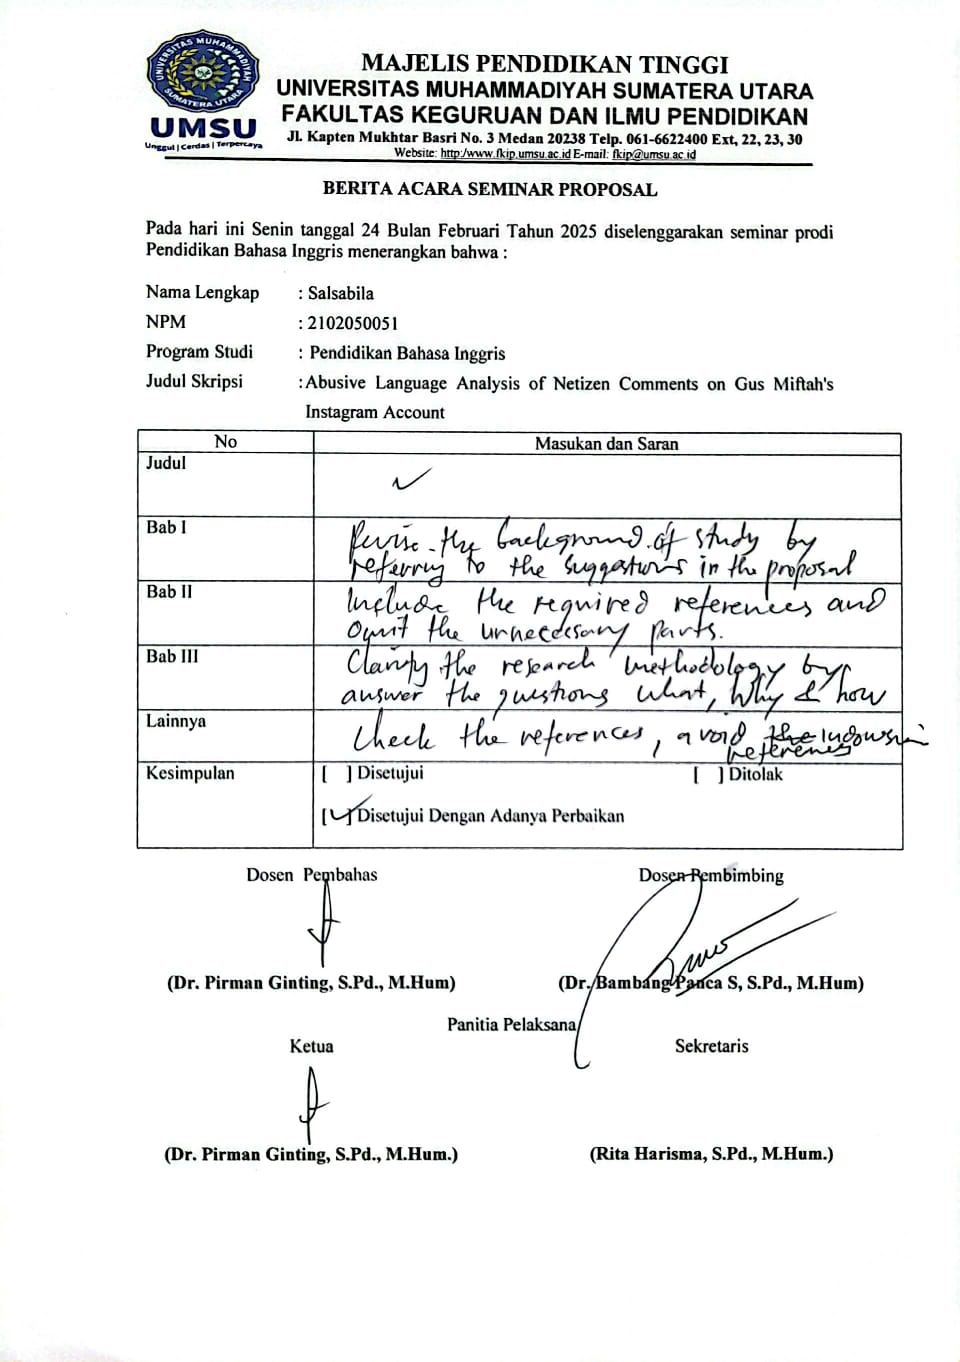 UNIVERSITAS MUHAMMADIYAH
SUMATERA UTARA
UMSU
Unggul | Cerdas | Terpercaya
MAJELIS PENDIDIKAN TINGGI
UNIVERSITAS MUHAMMADIYAH SUMATERA UTARA
FAKULTAS KEGURUAN DAN ILMU PENDIDIKAN
Jl. Kapten Mukhtar Basri No. 3 Medan 20238 Telp. 061-6622400 Ext, 22, 23, 30
Website: http:/www.fkip.umsu.ac.id E-mail: fkip@umsu.ac.id
BERITA ACARA SEMINAR PROPOSAL
Pada hari ini Senin tanggal 24 Bulan Februari Tahun 2025 diselenggarakan seminar prodi
Pendidikan Bahasa Inggris menerangkan bahwa :
Nama Lengkap : Salsabila
NPM : 2102050051
Program Studi : Pendidikan Bahasa Inggris
Judul Skripsi : Abusive Language Analysis of Netizen Comments on Gus Miftah's
Instagram Account
No Masukan dan Saran
Judul ✓
Bab I Revise the background of study by
referring to the suggestions in the proposal
Bab II Include the required references and
Omit the unnecessary parts.
Bab III Clarify the research methodology by
answer the questions what, why & how
Lainnya Check the references, avoid the Indonesian
references
Kesimpulan [ ] Disetujui [ ] Ditolak
[✓] Disetujui Dengan Adanya Perbaikan
Dosen Pembahas Dosen Pembimbing
(Dr. Pirman Ginting, S.Pd., M.Hum) (Dr. Bambang Panca S, S.Pd., M.Hum)
Panitia Pelaksana
Ketua Sekretaris
(Dr. Pirman Ginting, S.Pd., M.Hum.) (Rita Harisma, S.Pd., M.Hum.)